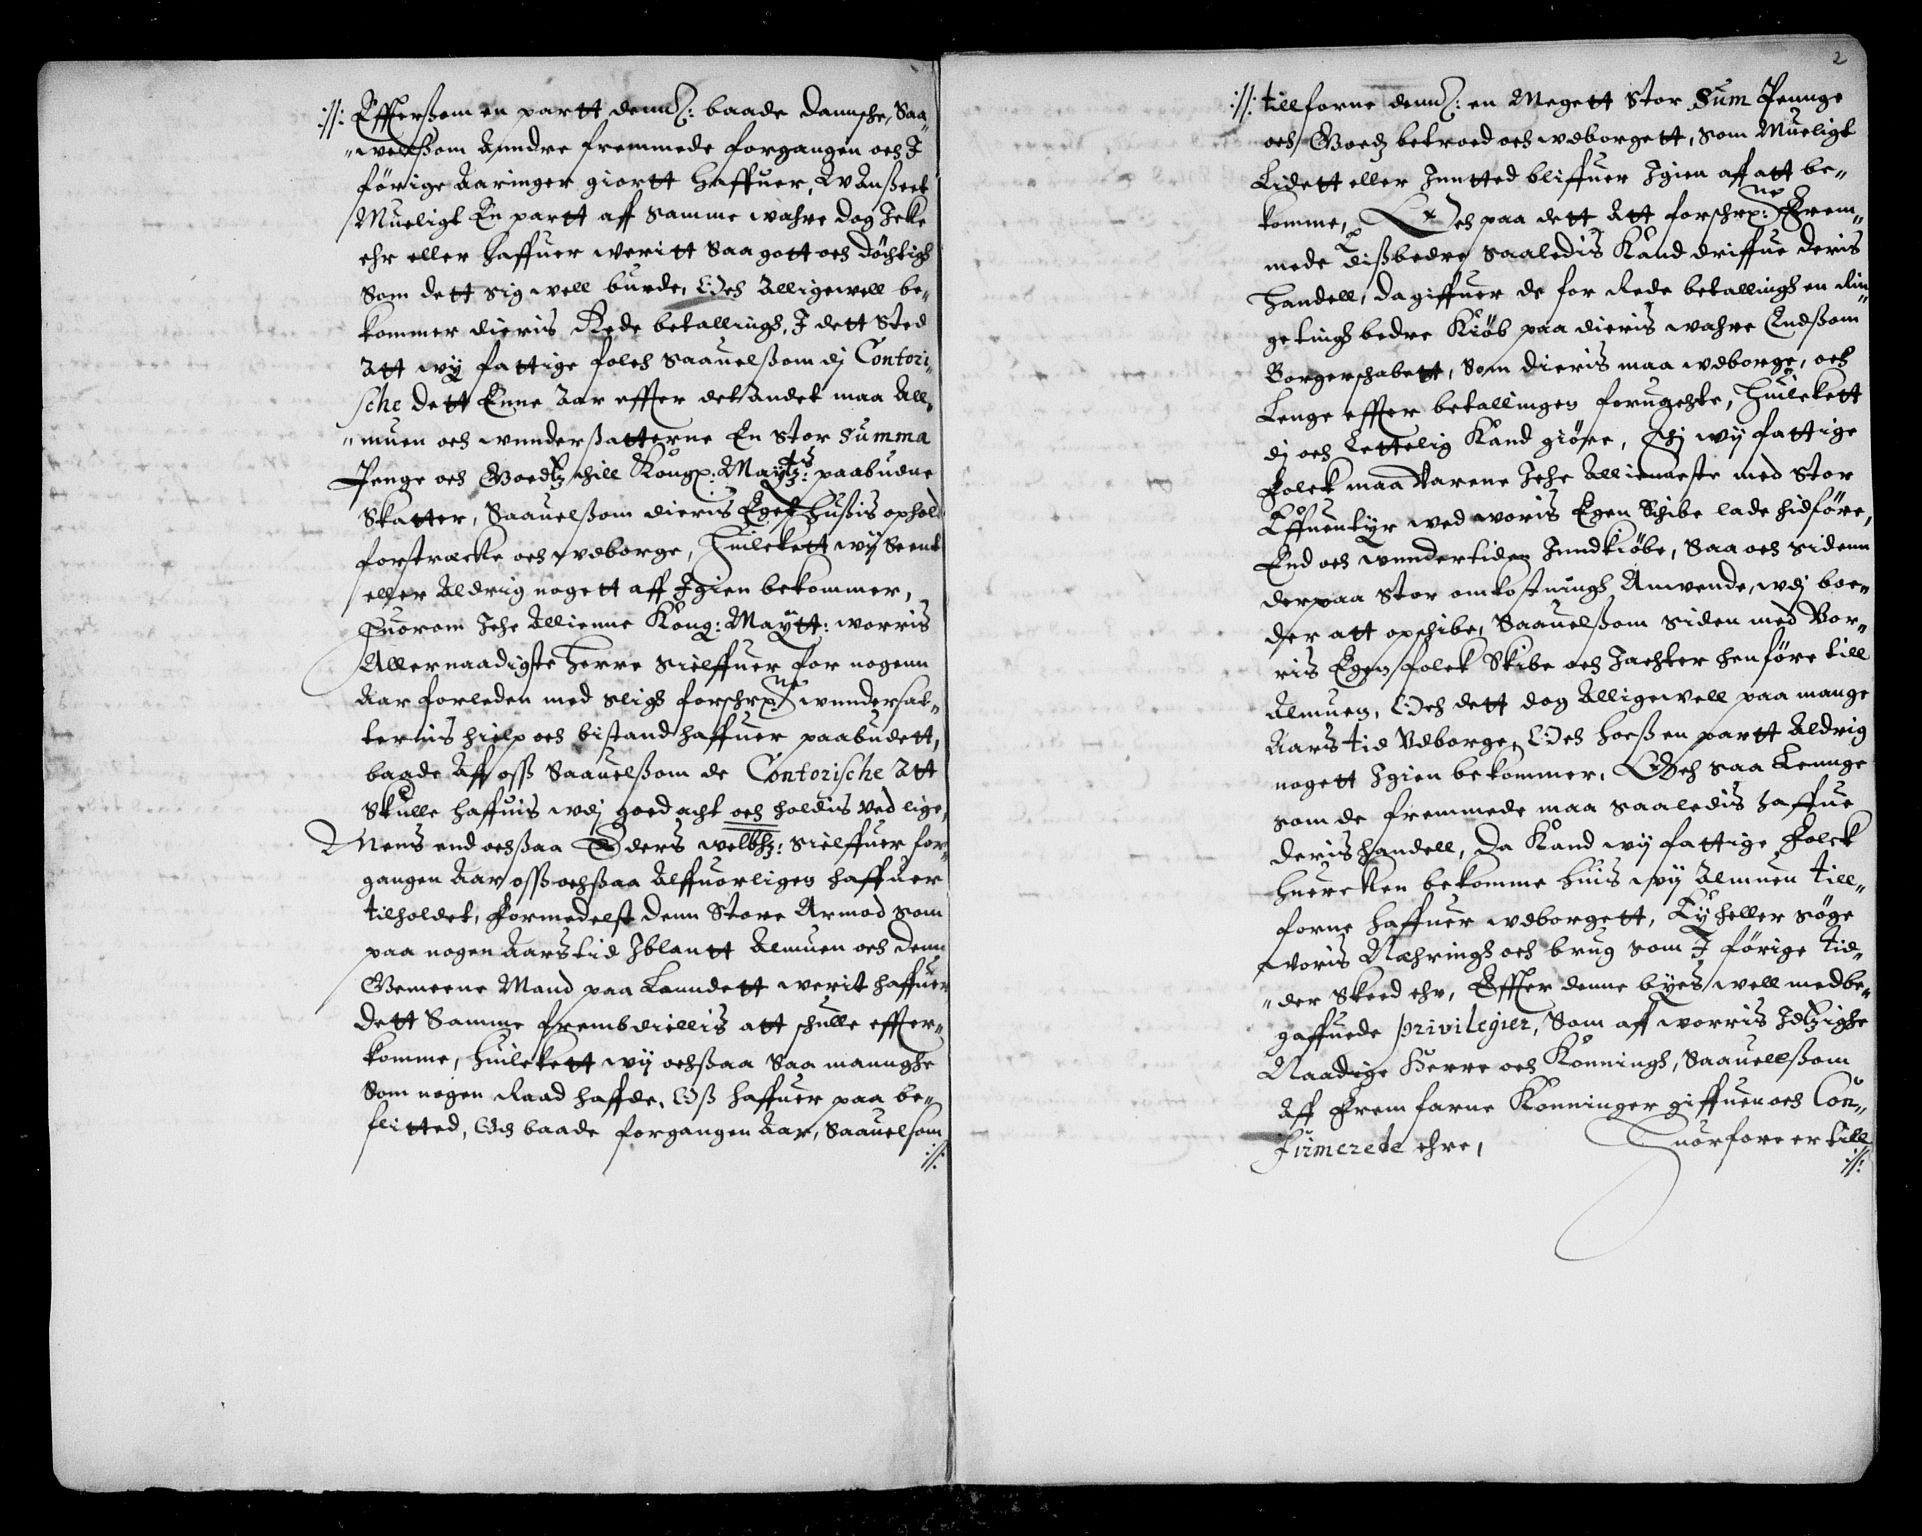 :/: Effterßom en partt dennem: baade dannsche, Saa-
"welßom Anndre fremmede forgangen och I
förige Aaringer giortt haffuer, WAnßeet
Mueligt En partt aff samme wahre dog Icke
ehr eller haffuer weritt Saa gott och döchtigh
Som dett sig well burde, Och Alligewell be-
kommer dieris Rede betallingh, I dett Sted
Att wij fattige folch Saauelßom dj Contori-
sche dett Enne Aar effter det Andet maa All-
"muen och wnnderßatterne En Stor Summa
Penge och Goedtz thill Kongl: Maytz: paabudne
Skatter, Saauelßom dieris Eget Hußis ophold
forstrecke och wdborge, Huilckett wij Seent
eller Aldrig nogett aff Igien bekommer,
Huorom Iche Allienne Kong: Maytt: worris
Allernaadigste Herre Sielffuer for nogenn
Aar forleden med sligh forschr:ne wnndersat-
ternis hielp och bistand haffuer paabudett,
baade Aff oss Saauelßom de Contorische Att
Skulle haffuis wdj goed acht och holdis ved lige,
Mens end ochßaa Eders welbhr: Sielffuer for-
gangen Aar oss ochßaa Alffuorligen haffuer
tilholdet, Formedelst denn Store Armod som
paa nogen Aarstid Iblantt Almuen och denn
Gemeene Mand paa Lanndett werit haffuer
dett Samme frembdiellis att schulle effter-
komme, huilckett wij ochßaa Saa mannghe
Som nogen Raad haffde, Oß haffuer paa be-
flitted, Och baade forgangen Aar, Saauelsom
:/:
2
:/: tillforne dennem: en Megett Stor Sum Pennge
och Goedz betroed och wdborgett, som Mueligt
Lidett eller Inntted bliffuer Igien aff att be-
komme, Och paa dett Att forschr:ne Frem-
mede dißbedre Saaledis Kand driffue deris
Handell, da giffuer de for Rede betallingh en Rin-
getingh bedre Kiöb paa dieris wahre Endßom
Borgerschabett, Som dieris maa wdborge, och
Lenge effter betallingen forugente, Huilckett
dj och Lettelig Kand giöre, Thj wij fattige
Folck maa Varene Iche Allieneeste med Stor
Effuentyr wed woris Egen Schibe lade hidföre,
End och wnndertiden Inndkiöbe, Saa och sidenn
derpaa Stor omkostningh Anwende, wdj boe-
der att opschibe, Saauelßom siden med Vor-
ris Egen folck Skibe och Jachter henföre till
Almuen, Och dett dog Alligewell paa mange
Aars tid Vdborge, Och hoeß en partt Aldrig
nogett Igien bekommer, Och saa Lennge
som de fremmede maa saaledis haffue
deris handell, da Kand wij fattige Folck
huercken bekomme huis wij Almuen till-
forne haffuer wdborgett, Ey heller söge
woris Næhringh och brug som I förige tid-
"der Skeed ehr, Effter denne byes well medbe-
gaffuede privilegier, Som aff worris Idtzighe
Naadige Herre och Konningh, Saauellßom
Aff Frem farne Konninger giffuen och Con-
firmerede ehre, Huorfore er till
:/: